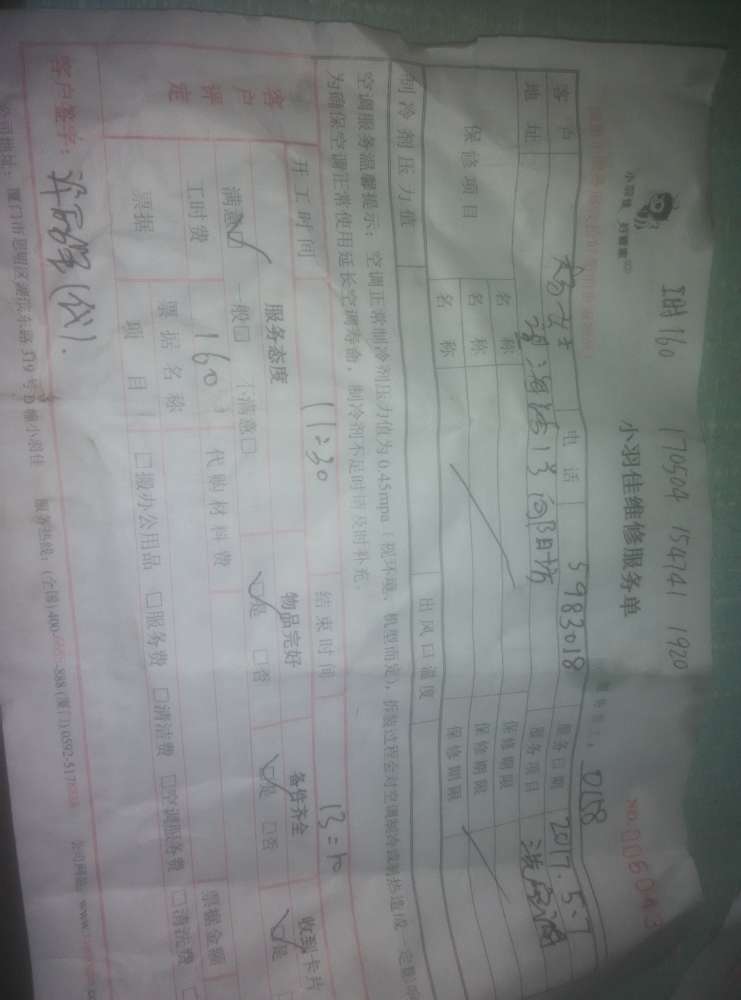 工时160 170504 154741 1920
小羽佳 好管家
小羽佳维修服务单
0168
NO. 005043
客户 女士 电话 5983018 服务日期 2017.5.7
地址 1号 服务项目
保修项目 名称 保修期限
名称 保修期限
名称 保修期限
制冷剂压力值 出风口温度
空调服务温馨提示：空调正常制冷剂压力值为0.45mpa（视环境、机型而定），拆装过程会对空调制冷或制热造成一定影响
为确保空调正常使用延长空调寿命，制冷剂不足时请及时补充。
开工时间 11:30 结束时间 13:10
客户评定 服务态度 物品完好 备件齐全 收到卡片
满意☑ 一般□ 不满意□ ☑是 □否 ☑是 □否 ☑是
工时费 160 代购材料费 票据金额
票据 票据名称
项目 □搬办公用品 □服务费 □清洁费 □空调服务费 □清洗费 □
客户签字： (代)
厦门市思明区 319号 小羽佳 服务热线：(全国)400- -888(厦门)0592- 公司网址：www.